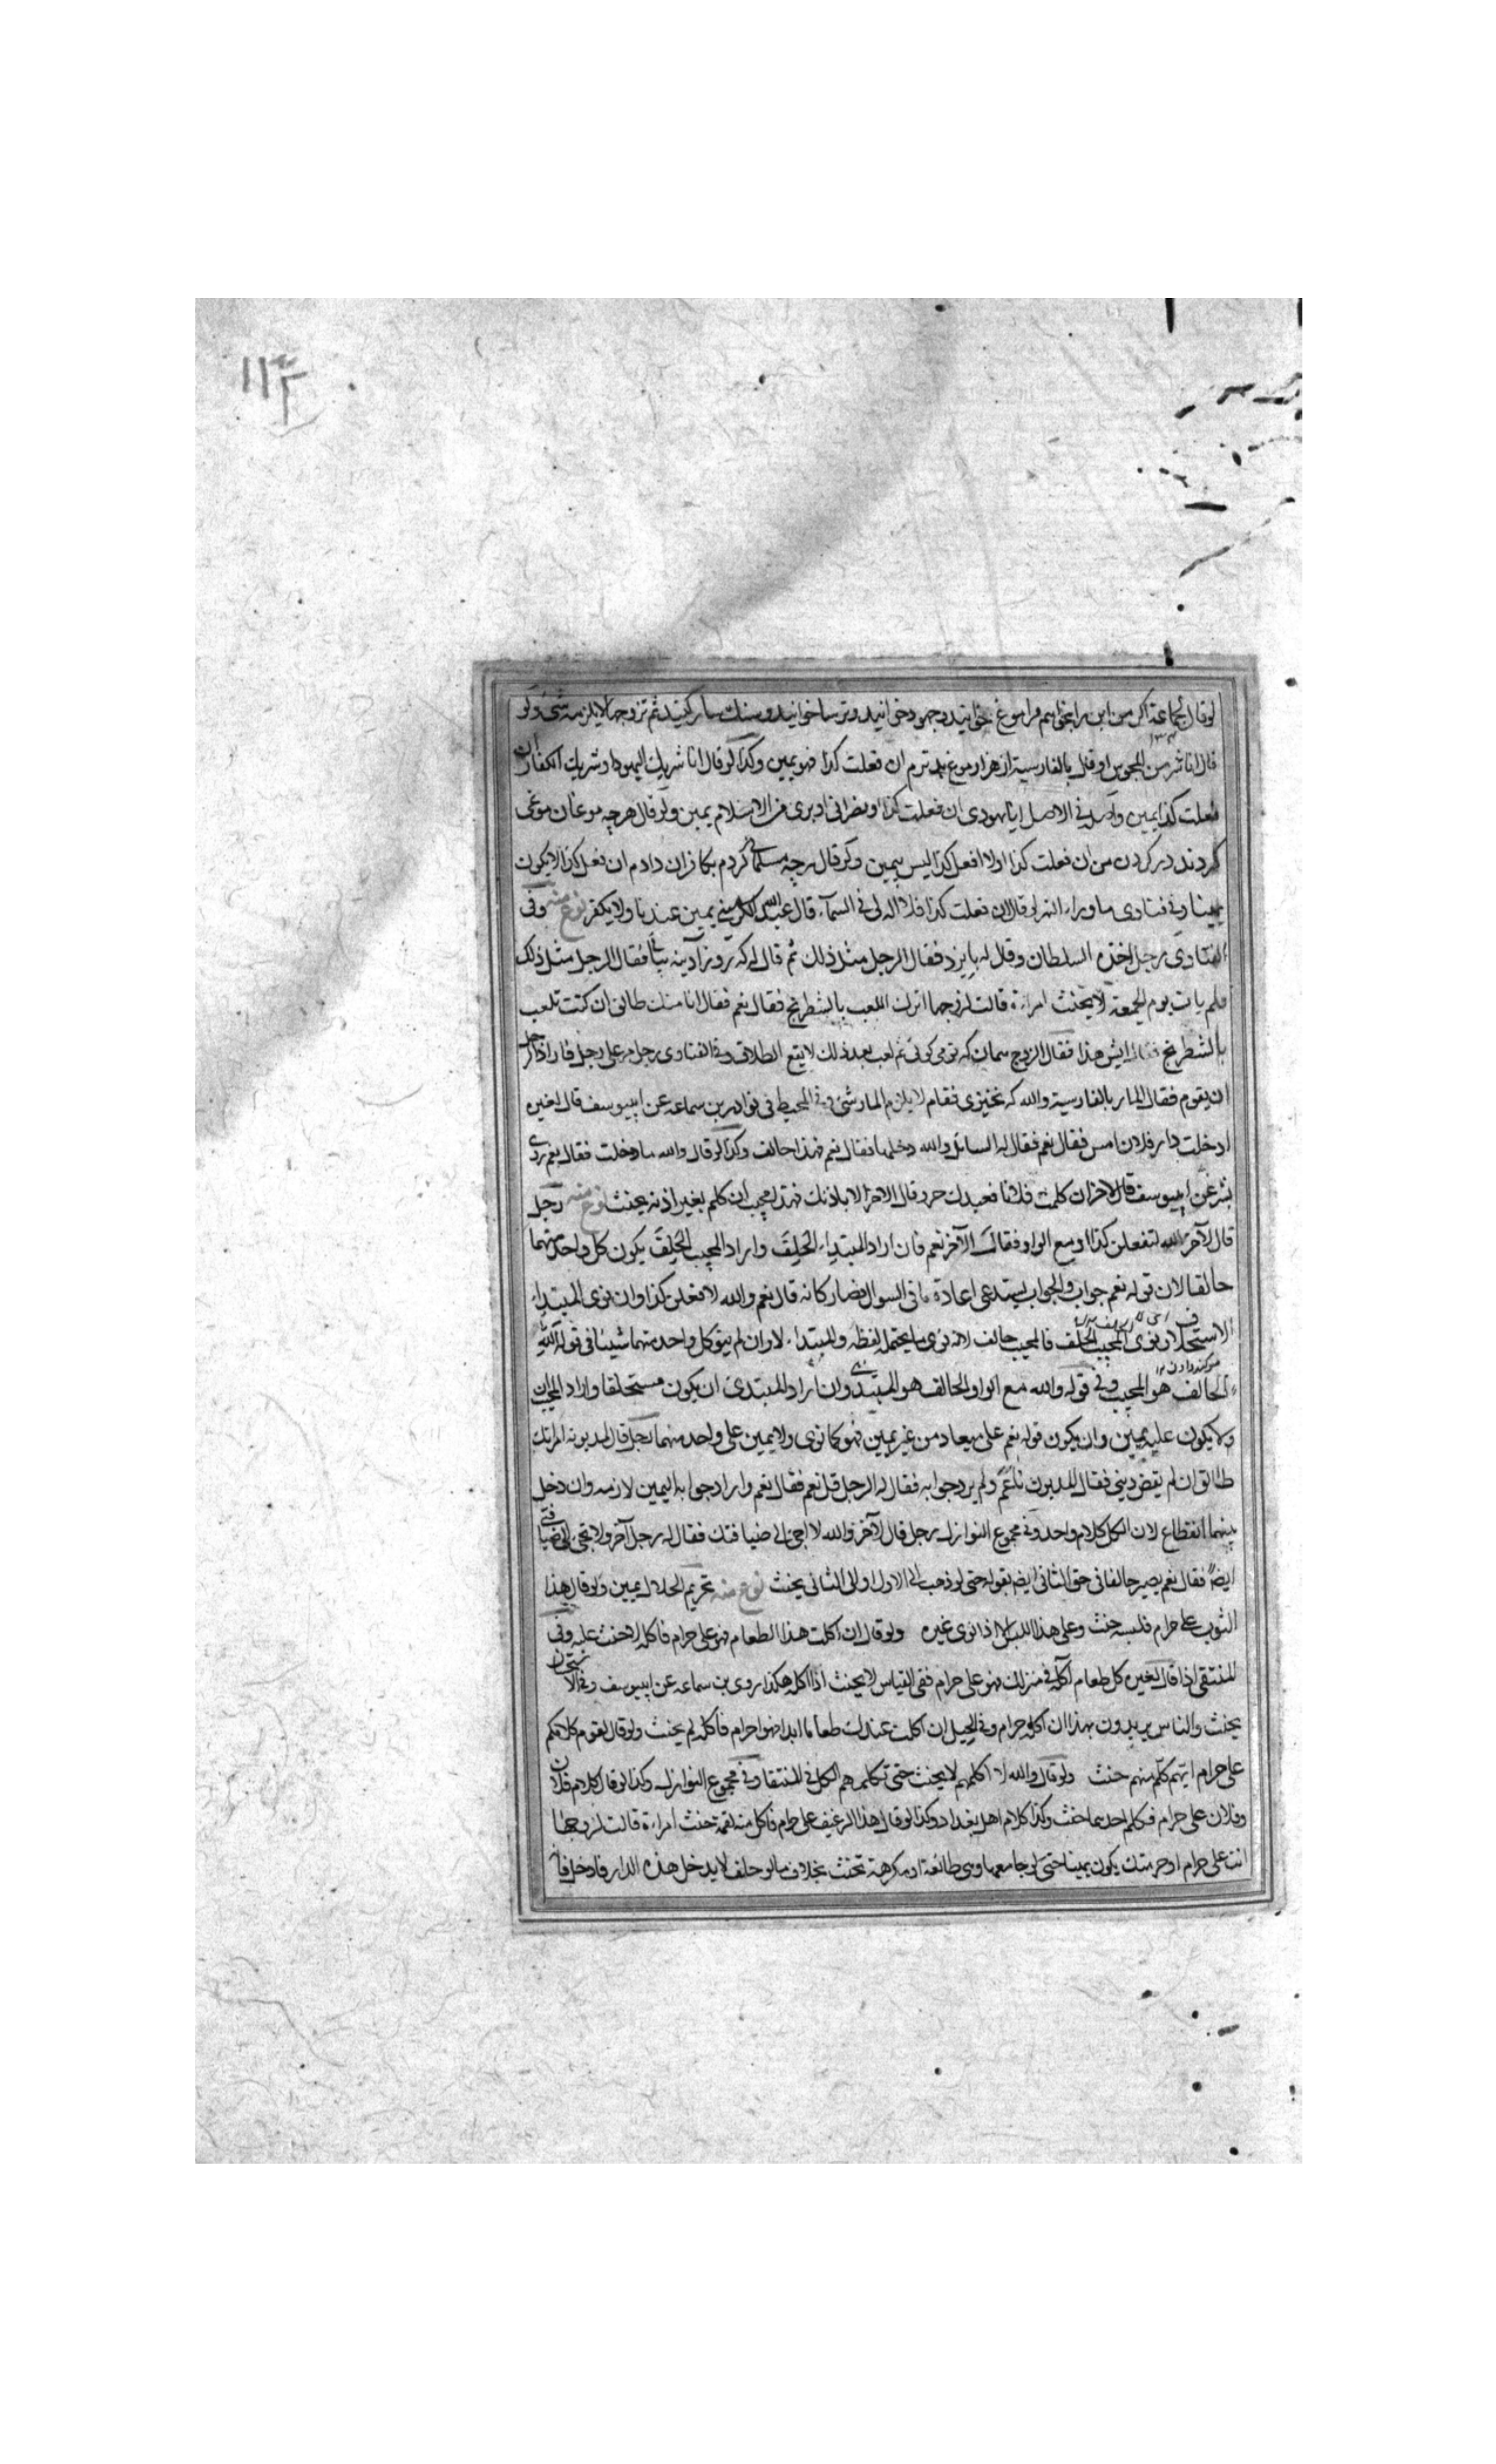 ١١٤
لوقال لجماعة اكر من اين را بخواهم مرا موغ خوانيد وجهود خوانيد وترسا خوانيد وسنكسار كنيد ثم تزوجها لا يلزمه شئ ولو
قال انا شر من المجوس او قال بالفارسية از هزار موغ بدترم ان فعلت كذا فهو يمين وكذا لو قال انا شريك اليهود او شريك الكفار ان
فعلت كذا يمين واصله في الاصل انا يهودى ان فعلت كذا او نصرانى او برى من الاسلام يمين ولو قال هرچه موغان موغى
كردند در كردن من ان فعلت كذا اولا افعل كذا ليس بيمين ولو قال هرچه مسلمانى كردم بكافران دادم ان فعل كذا لا يكون
يمينا وفى فتاوى ماوراء النهر لو قال ان فعلت كذا فلا اله لى فى السمآء قال عبد الكريم يمين عندنا ولا يكفر نوع منه وفى
الفتاوى رجل اخذه السلطان وقال له بايزد فقال الرجل مثل ذلك ثم قال له كه روز آدينه بيائى فقال الرجل مثل ذلك
فلم يات يوم الجمعة لا يحنث امراءة قالت لزوجها اترك اللعب بالشطرنج فقال نعم فقال انا منك طالق ان كنت تلعب
بالشطرنج فقال ايش هذا فقال الزوج همان كه تو مى كوئى ثم لعب بعد ذلك لا يقع الطلاق وفى الفتاوى رجل مر على رجل فاراد الرجل
ان يقوم فقال المار بالفارسية والله كه نخيزى فقام لا يلزم المار شئ وفى المحيط فى نوادر بن سماعه عن ابيوسف قال لغيره
ادخلت دار فلان امس فقال نعم فقال له السائل والله دخلتها فقال نعم فهذا حالف وكذا لو قال والله ما دخلت فقال نعم روى
بشر عن ابيوسف قال لآخر ان كلمت فلانا فعبدك حر وقال الاخر الا باذنك فهذا مجيب ان كلم بغير اذنه يحنث نوع منه رجل
قال لآخر الله لتفعلن كذا او مع الواو فقال الآخر نعم فان اراد المبتدء الحلف واراد المجيب الحلف يكون كل واحد منهما
حالفا لان قوله نعم جواب والجواب يستدعى اعادة ما فى السوال فصار كانه قال نعم والله لافعلن كذا وان نوى المبتدء
الاستحلاف ونوى المجيب الحلف فالمجيب حالف لانه نوى ما يحتمله لفظه والمبتداء لا وان لم ينو كل واحد منهما شيئا فى قوله الله
سوكند دادن
الحالف هو المجيب وفى قوله والله مع الواو الحالف هو المبتدى وان اراد المبتدى ان يكون مستحلفا واراد المجيب ان
ولا يكون عليه يمين وان يكون قوله نعم على ميعاد من غير يمين فهو كما نوى ولا يمين على واحد منهما رجل قال لمديونه امرتك
طالق ان لم يقض دينى فقال المديون ناعم ولم يرد جوابه فقال له الرجل قل نعم فقال نعم واراد جوابه اليمين لازمه وان دخل
بينهما انقطاع لان الكل كلام واحد وفى مجموع النوازل رجل قال لآخر والله لا اجئ الى ضيافتك فقال له رجل آخر ولا تجئ الى ضيافتى
ايضا فقال نعم يصير حالفا فى حق الثانى ايضا بقوله حتى لو ذهب الى الاول او الى الثانى يحنث نوع منه تحريم الحلال يمين ولو قال هذا
الثوب على حرام فلبسه حنث وعلى هذا اللبس الا اذا نوى غيره ولو قال ان اكلت هذا الطعام فهو على حرام فاكله لا حنث عليه وفى
المنتقى اذا قال لغيره كل طعام آكله فى منزلك فهو على حرام ففى القياس لا يحنث اذا اكله هكذا روى بن سماعه عن ابيوسف وفى الاستحسان
يحنث والناس يريدون بهذا ان اكله حرام وفى الحيل ان اكلت عندك طعاما ابدا فهو حرام فاكله لم يحنث ولو قال لقوم كلامكم
على حرام ايهم كلم منهم حنث ولو قال والله لا اكلمهم لا يحنث حتى تكلم هم الكل فى المنتقا وفى مجموع النوازل وكذا لو قال كلام فلان
وفلان على حرام فكلم احدهما حنث وكذا كلام اهل بغداد وكذا لو قال هذا الرغيف على حرام فاكل منه لقمة حنث امراءة قالت لزوجها
انت على حرام او حرمتك يكون يمينا حتى لو جامعها وهى طائعة او مكرهة تحنث بخلاف ما لو حلف لا يدخل هذه الدار فادخل فا